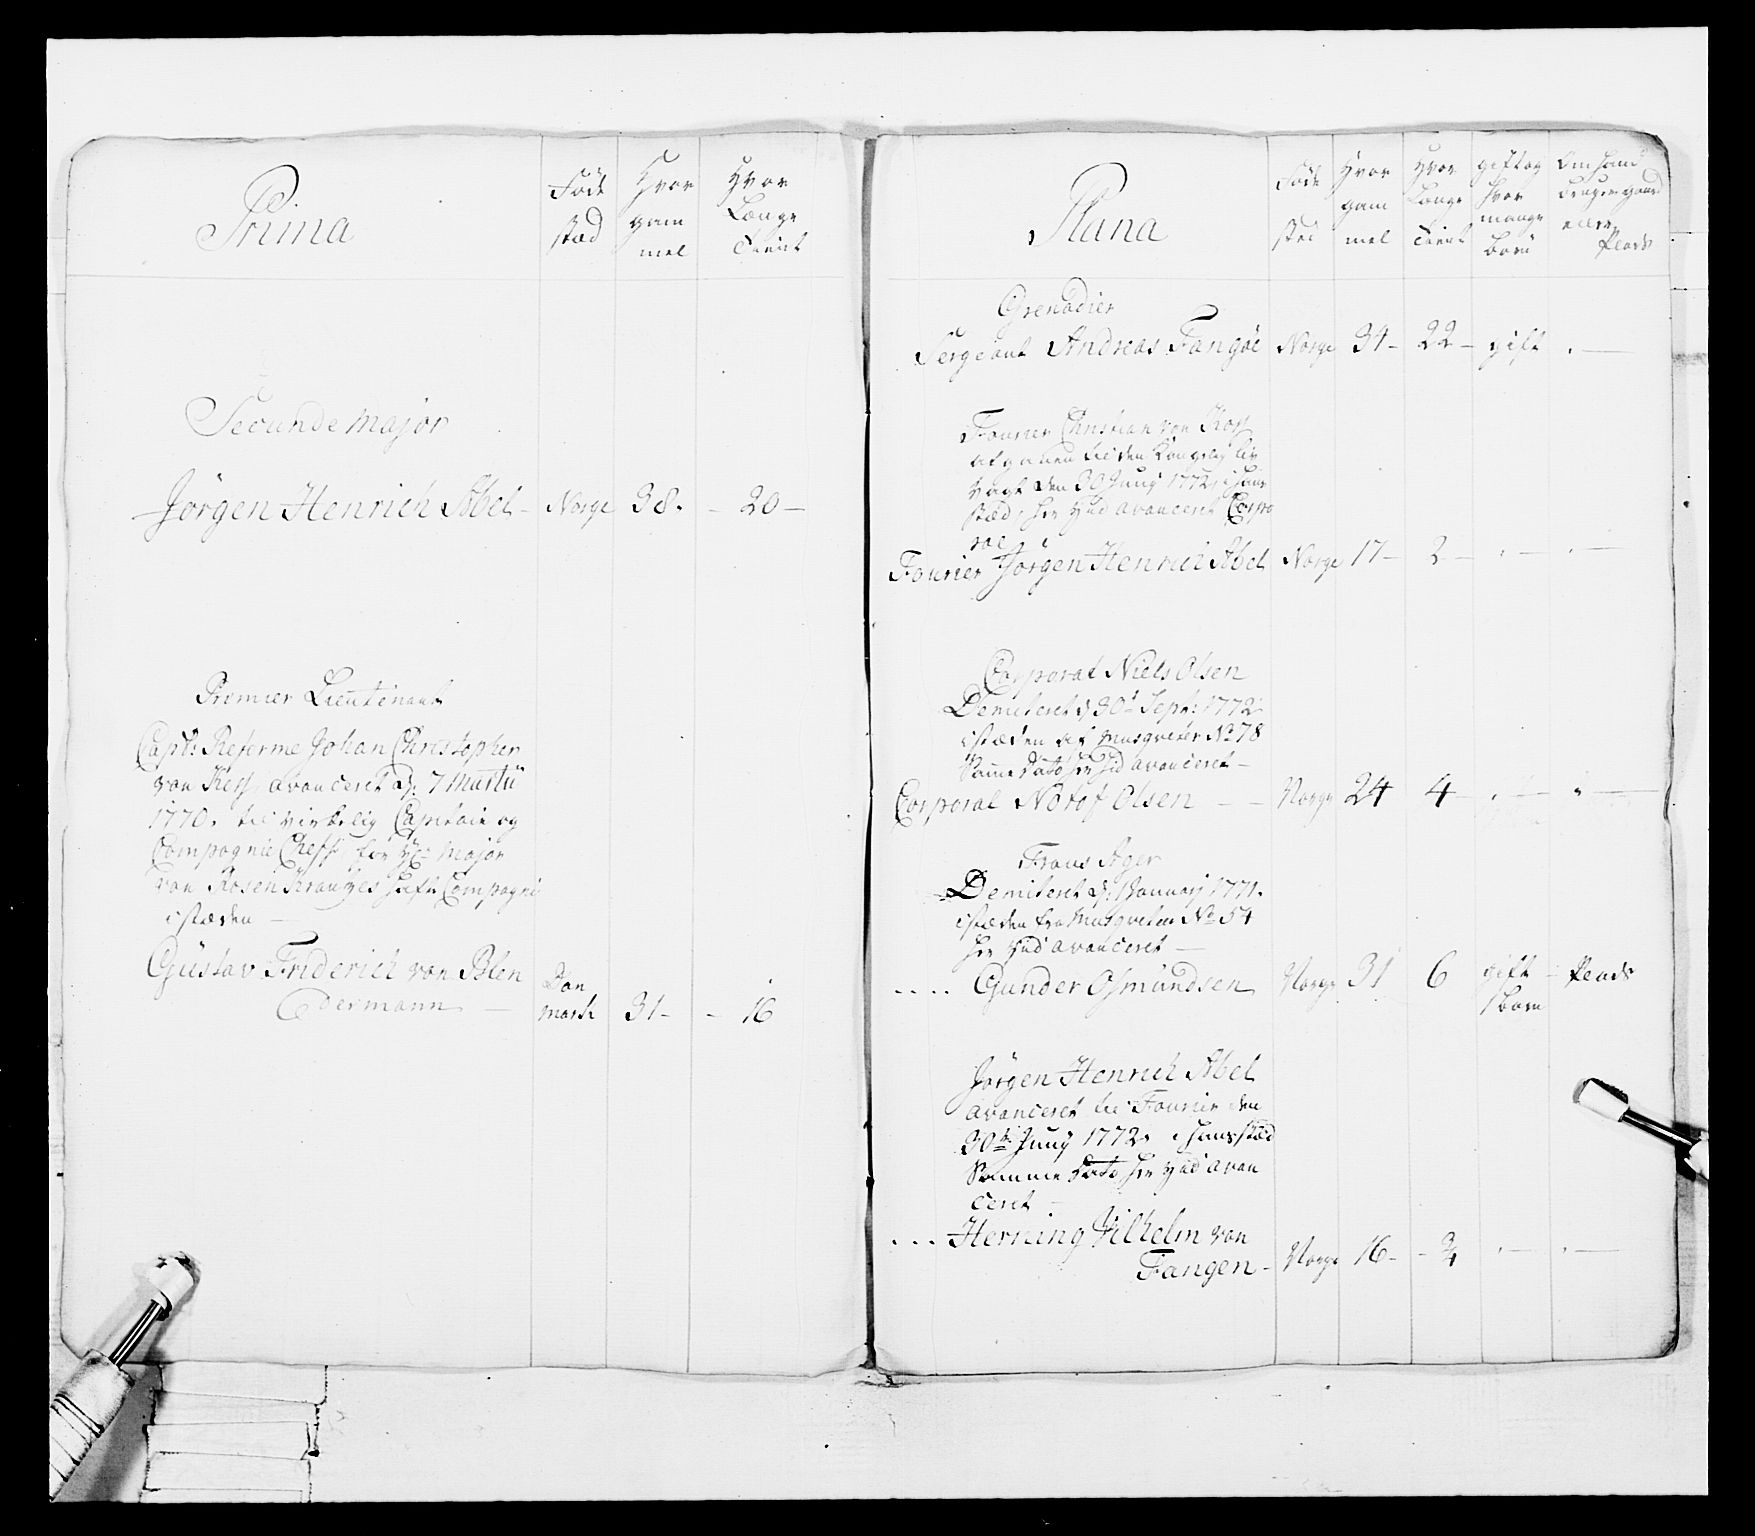 Prima
Föde
stæd
Hvor
gam
mel
Hvor
Længe
Tient
Secunde Major
Jörgen Henrich Abel - Norge 38. - 20 -
Premier Lieutenant
Capt: Reforme Johan Christopher
von Koss, avanceret d: 7 Martii
1770. til virkelig Capitain og
Compagnie Cheff, for H: Major
von Rosen Krantzes hafte Compagni
i stæden
Gustav Friderich von Blen
Edermann - Dan
mark 31 - - 16
Plana
Föde
sted
Hvor
gam
mel
Hvor
Længe
Tient
gift og
hvor
mange
børn
Om hand
bruger gaard
eller
Plads
Grenadier
Sergeant Andreas Fangöe Norge 34 - 22 - gift . -
Fourier Christian von Koss
afgaaen til den Kongelig Liv
vagt den 30 Junÿ 1772, i hans
stæd, her hid avanceret Corpo
ral
Fourier Jörgen Henrich Abel Norge 17 - 2 - . - . -
Corporal Niels Olsen
Demiteret d 30t Sept: 1772
i stæden af Musqveter No 78
Samme Dato her hid avanceret -
Corporal Notof Olsen - - Norge 24 4 . - . -
Frans Ager
Demiteret d: 1 Januarj 1771.
i stæden fra Musqveteer No 54
her hid avanceret -
.... Gunder Osmundsen Norge 31 6 gift - Plads
1 børn
Jörgen Henrich Abel
avanceret til Fourier den
30te Junÿ 1772. i hans stæd
Samme Dato her hid avan
ceret -
... Herning Vilhelm von
Fangen - Norge 16 - - 3/4 . - . -